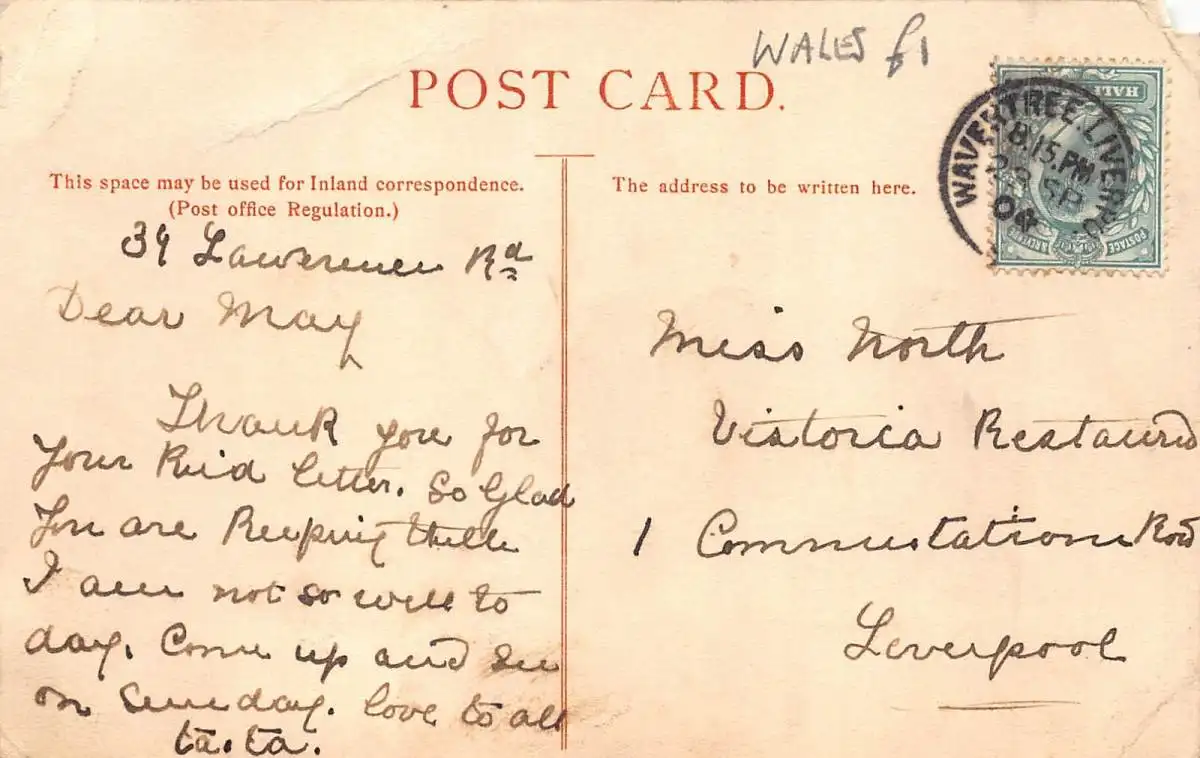 WALES £1
POST CARD.
HALF
WAVERTREE. LIVERPOOL
8.15.PM
28 SP
04
POSTAGE
This space may be used for Inland correspondence.
(Post office Regulation.)
The address to be written here.
39 Lawrence Rd
Dear May
Thank you for
your kind letter. So Glad
You are keeping well
I am not so well to
day. Come up and see
on Sunday. love to all
ta. ta.
Miss North
Victoria Restaurd
1 Commutation Row
Liverpool